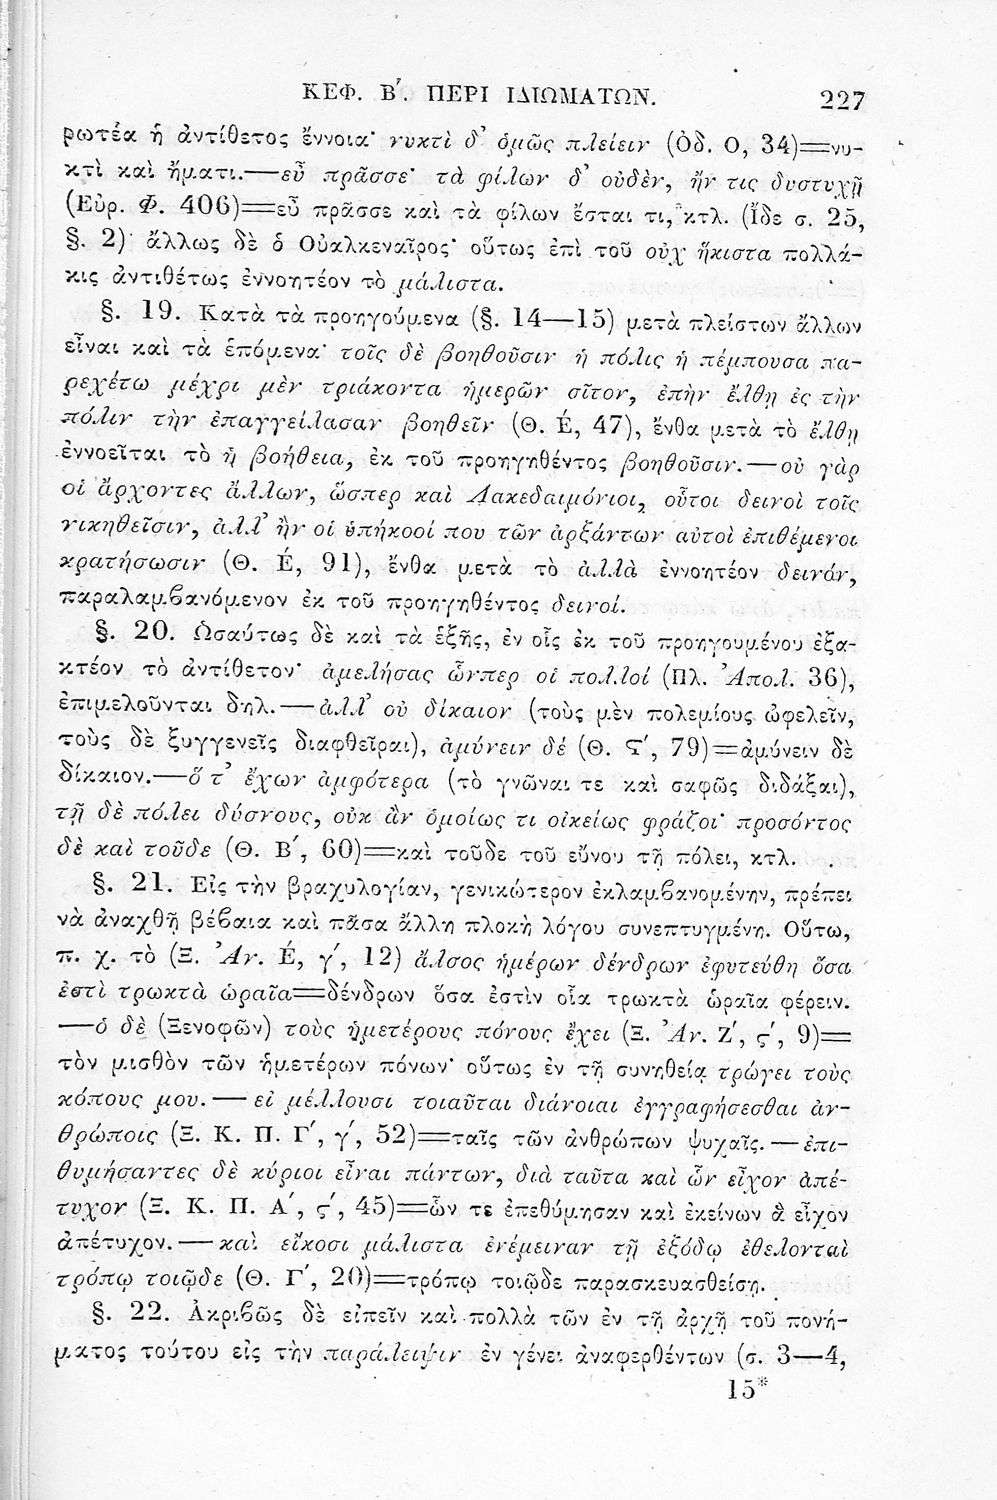 ΚΕΦ. Β΄. ΠΕΡΙ ΙΔΙΩΜΑΤΩΝ. 227
ρωτέα ἡ ἀντίθετος ἔννοια· νυκτὶ δ’ ὁμῶς πλείειν (Ὀδ. Ο, 34)=νυ-
κτὶ καὶ ἤματι.—εὖ πρᾶσσε· τὰ φίλων δ’ οὐδὲν, ἤν τις δυστυχῇ
(Εὐρ. Φ. 406)=εὖ πρᾶσσε καὶ τὰ φίλων ἔσται τι, κτλ. (Ἴδε σ. 25,
§. 2)· ἄλλως δὲ ὁ Οὐαλκεναῖρος· οὕτως ἐπὶ τοῦ οὐχ ἥκιστα πολλά-
κις ἀντιθέτως ἐννοητέον τὸ μάλιστα.
§. 19. Κατὰ τὰ προηγούμενα (§. 14—15) μετὰ πλείστων ἄλλων
εἶναι καὶ τὰ ἑπόμενα· τοῖς δὲ βοηθοῦσιν ἡ πόλις ἡ πέμπουσα πα-
ρεχέτω μέχρι μὲν τριάκοντα ἡμερῶν σῖτον, ἐπὴν ἔλθῃ ἐς τὴν
πόλιν τὴν ἐπαγγείλασαν βοηθεῖν (Θ. Έ, 47), ἔνθα μετὰ τὸ ἔλθῃ
ἐννοεῖται τὸ ἡ βοήθεια, ἐκ τοῦ προηγηθέντος βοηθοῦσιν.—οὐ γὰρ
οἱ ἄρχοντες ἄλλων, ὥσπερ καὶ Λακεδαιμόνιοι, οὗτοι δεινοὶ τοῖς
νικηθεῖσιν, ἀλλ’ ἢν οἱ ὑπήκοοί που τῶν ἀρξάντων αὐτοὶ ἐπιθέμενοι
κρατήσωσιν (Θ. Έ, 91), ἔνθα μετὰ τὸ ἀλλὰ ἐννοητέον δεινόν,
παραλαμβανόμενον ἐκ τοῦ προηγηθέντος δεινοί.
§. 20. Ὡσαύτως δὲ καὶ τὰ ἑξῆς, ἐν οἷς ἐκ τοῦ προηγουμένου ἐξα-
κτέον τὸ ἀντίθετον· ἀμελήσας ὧνπερ οἱ πολλοί (Πλ. Ἀπολ. 36),
ἐπιμελοῦνται δηλ.—ἀλλ’ οὐ δίκαιον (τοὺς μὲν πολεμίους ὠφελεῖν,
τοὺς δὲ ξυγγενεῖς διαφθεῖραι), ἀμύνειν δέ (Θ. Ϛ΄, 79)=ἀμύνειν δὲ
δίκαιον.—ὅ τ’ ἔχων ἀμφότερα (τὸ γνῶναι τε καὶ σαφῶς διδάξαι),
τῇ δὲ πόλει δύσνους, οὐκ ἂν ὁμοίως τι οἰκείως φράζοι· προσόντος
δὲ καὶ τοῦδε (Θ. Β΄, 60)=καὶ τοῦδε τοῦ εὔνου τῇ πόλει, κτλ.
§. 21. Εἰς τὴν βραχυλογίαν, γενικώτερον ἐκλαμβανομένην, πρέπει
νὰ ἀναχθῇ βέβαια καὶ πᾶσα ἄλλη πλοκὴ λόγου συνεπτυγμένη. Οὕτω,
π. χ. τὸ (Ξ. Ἀν. Έ, γ΄, 12) ἄλσος ἡμέρων δένδρων ἐφυτεύθη ὅσα
ἐστὶ τρωκτὰ ὡραῖα=δένδρων ὅσα ἐστὶν οἷα τρωκτὰ ὡραῖα φέρειν.
—ὁ δὲ (Ξενοφῶν) τοὺς ἡμετέρους πόνους ἔχει (Ξ. Ἀν. Ζ΄, ϛ΄, 9)=
τὸν μισθὸν τῶν ἡμετέρων πόνων· οὕτως ἐν τῇ συνηθείᾳ τρώγει τοὺς
κόπους μου.—εἰ μέλλουσι τοιαῦται διάνοιαι ἐγγραφήσεσθαι ἀν-
θρώποις (Ξ. Κ. Π. Γ΄, γ΄, 52)=ταῖς τῶν ἀνθρώπων ψυχαῖς.—ἐπι-
θυμήσαντες δὲ κύριοι εἶναι πάντων, διὰ ταῦτα καὶ ὧν εἶχον ἀπέ-
τυχον (Ξ. Κ. Π. Α΄, ϛ΄, 45)=ὧν τε ἐπεθύμησαν καὶ ἐκείνων ἃ εἶχον
ἀπέτυχον.—καὶ εἴκοσι μάλιστα ἐνέμειναν τῇ ἐξόδῳ ἐθελονταὶ
τρόπῳ τοιῷδε (Θ. Γ΄, 20)=τρόπῳ τοιῷδε παρασκευασθείσῃ.
§. 22. Ἀκριβῶς δὲ εἰπεῖν καὶ πολλὰ τῶν ἐν τῇ ἀρχῇ τοῦ πονή-
ματος τούτου εἰς τὴν παράλειψιν ἐν γένει ἀναφερθέντων (σ. 3—4,
15*